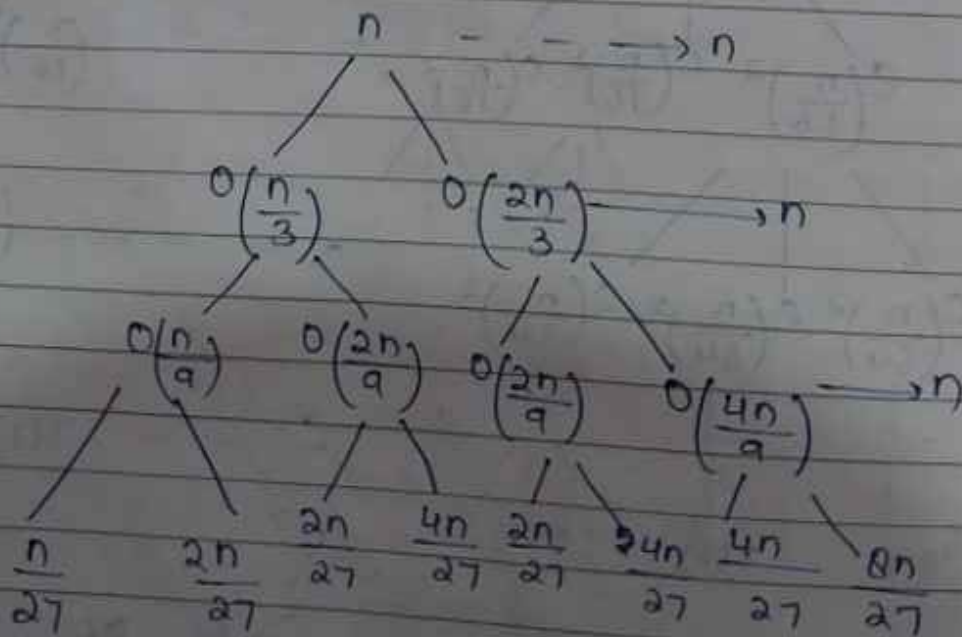 n - - → n
O(n/3) O(2n/3) → n
O(n/9) O(2n/9) O(2n/9) O(4n/9) → n
n/27 2n/27 2n/27 4n/27 2n/27 4n/27 4n/27 8n/27